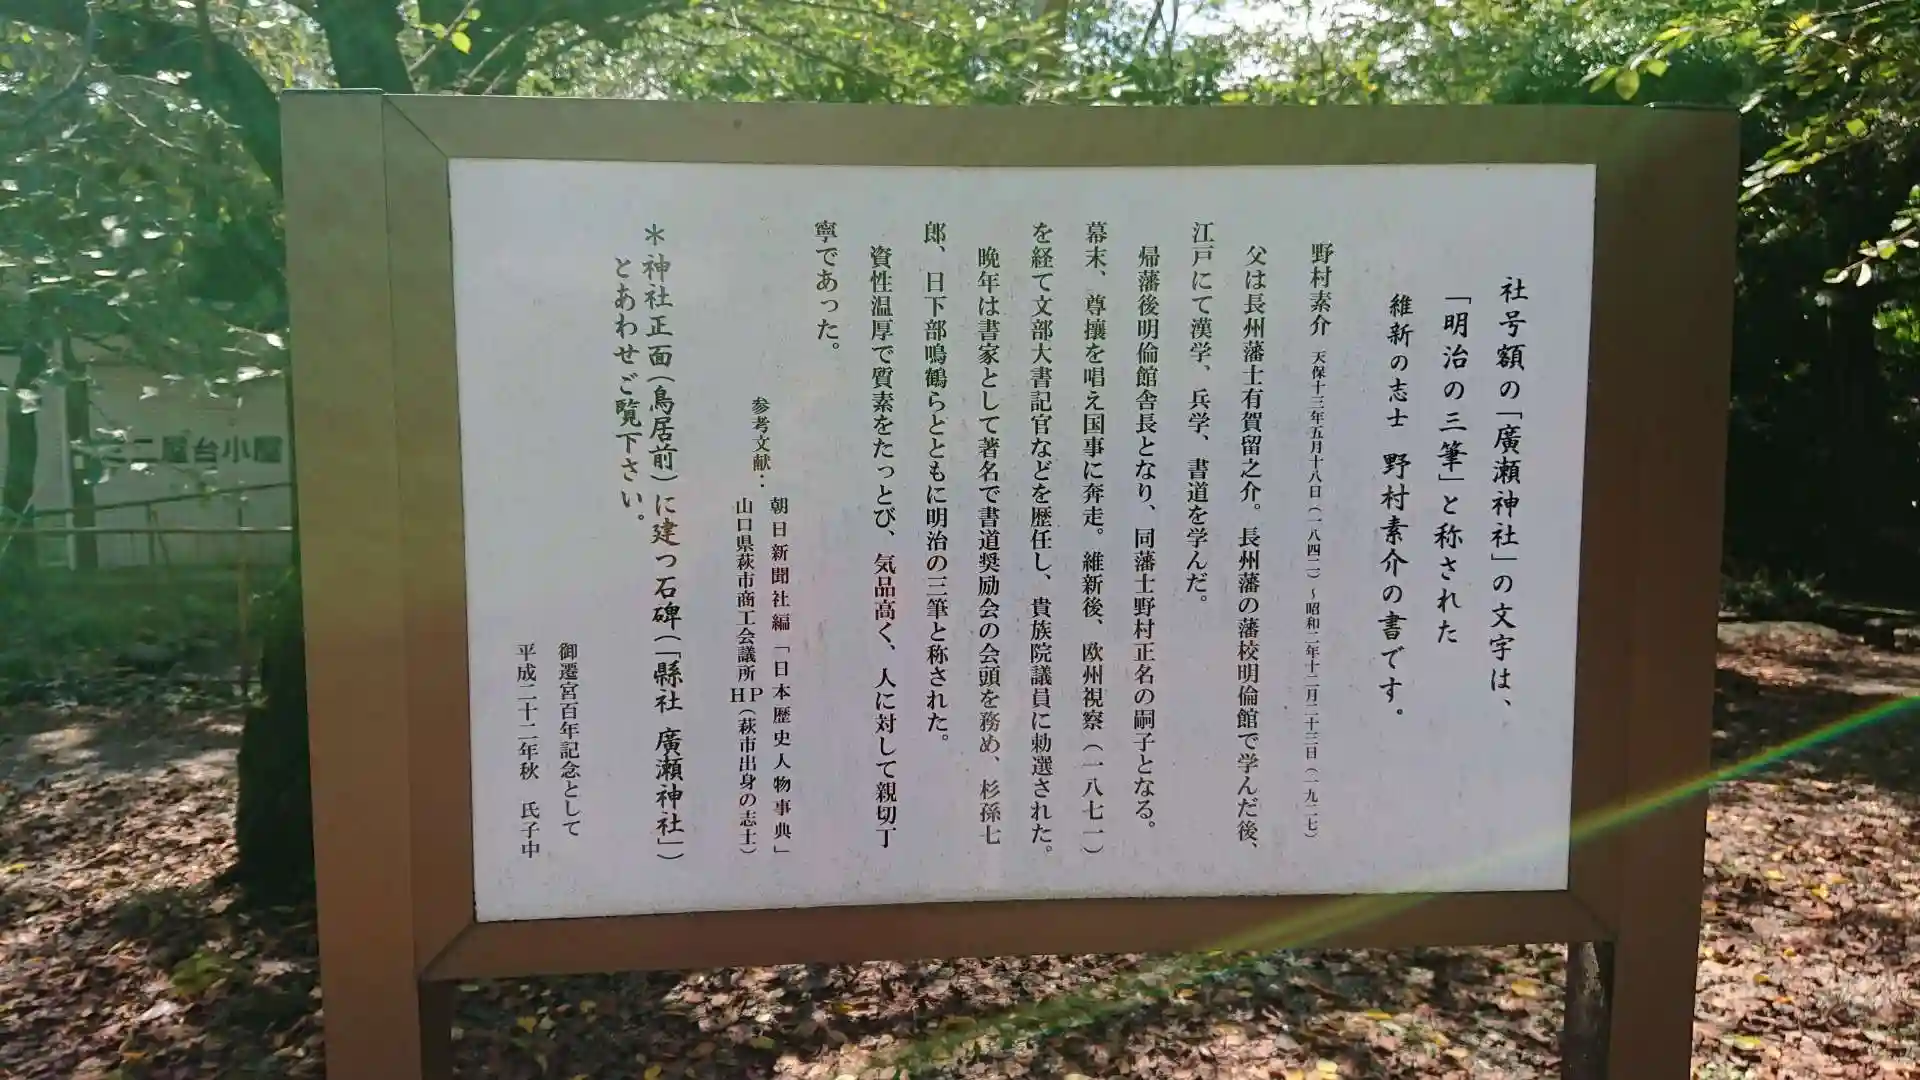 社号額の「廣瀬神社」の文字は、
「明治の三筆」と称された
維新の志士 野村素介の書です。
野村素介 天保十三年五月十八日(一八四二)～昭和二年十二月二十三日(一九二七)
父は長州藩士有賀留之介。長州藩の藩校明倫館で学んだ後、
江戸にて漢学、兵学、書道を学んだ。
帰藩後明倫館舎長となり、同藩士野村正名の嗣子となる。
幕末、尊攘を唱え国事に奔走。維新後、欧州視察(一八七一)
を経て文部大書記官などを歴任し、貴族院議員に勅選された。
晩年は書家として著名で書道奨励会の会頭を務め、杉孫七
郎、日下部鳴鶴らとともに明治の三筆と称された。
資性温厚で質素をたっとび、気品高く、人に対して親切丁
寧であった。
参考文献：朝日新聞社編「日本歴史人物事典」
山口県萩市商工会議所HP(萩市出身の志士)
＊神社正面(鳥居前)に建つ石碑(「縣社 廣瀬神社」)
とあわせご覧下さい。
御遷宮百年記念として
平成二十二年秋 氏子中
二屋台小屋